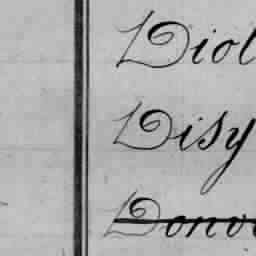 Diol
Disy
Donov